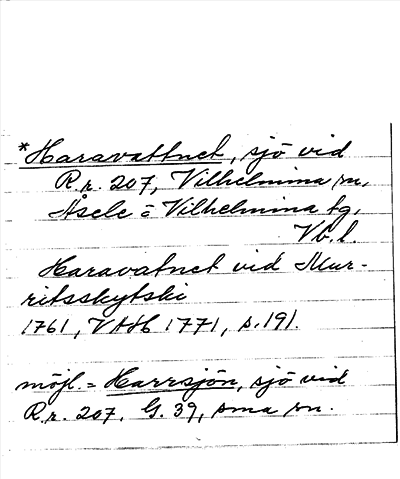 *Haravattnet, sjö vid
R.r. 207, Vilhelmina sn,
Åsele o Vilhelmina tg,
Vb. l.
Haravatnet vid Mur-
ritsskytski
1761, VAH 1771, s. 191.
möjl. = Harrsjön, sjö vid
R.r. 207. G. 39, sma sn.